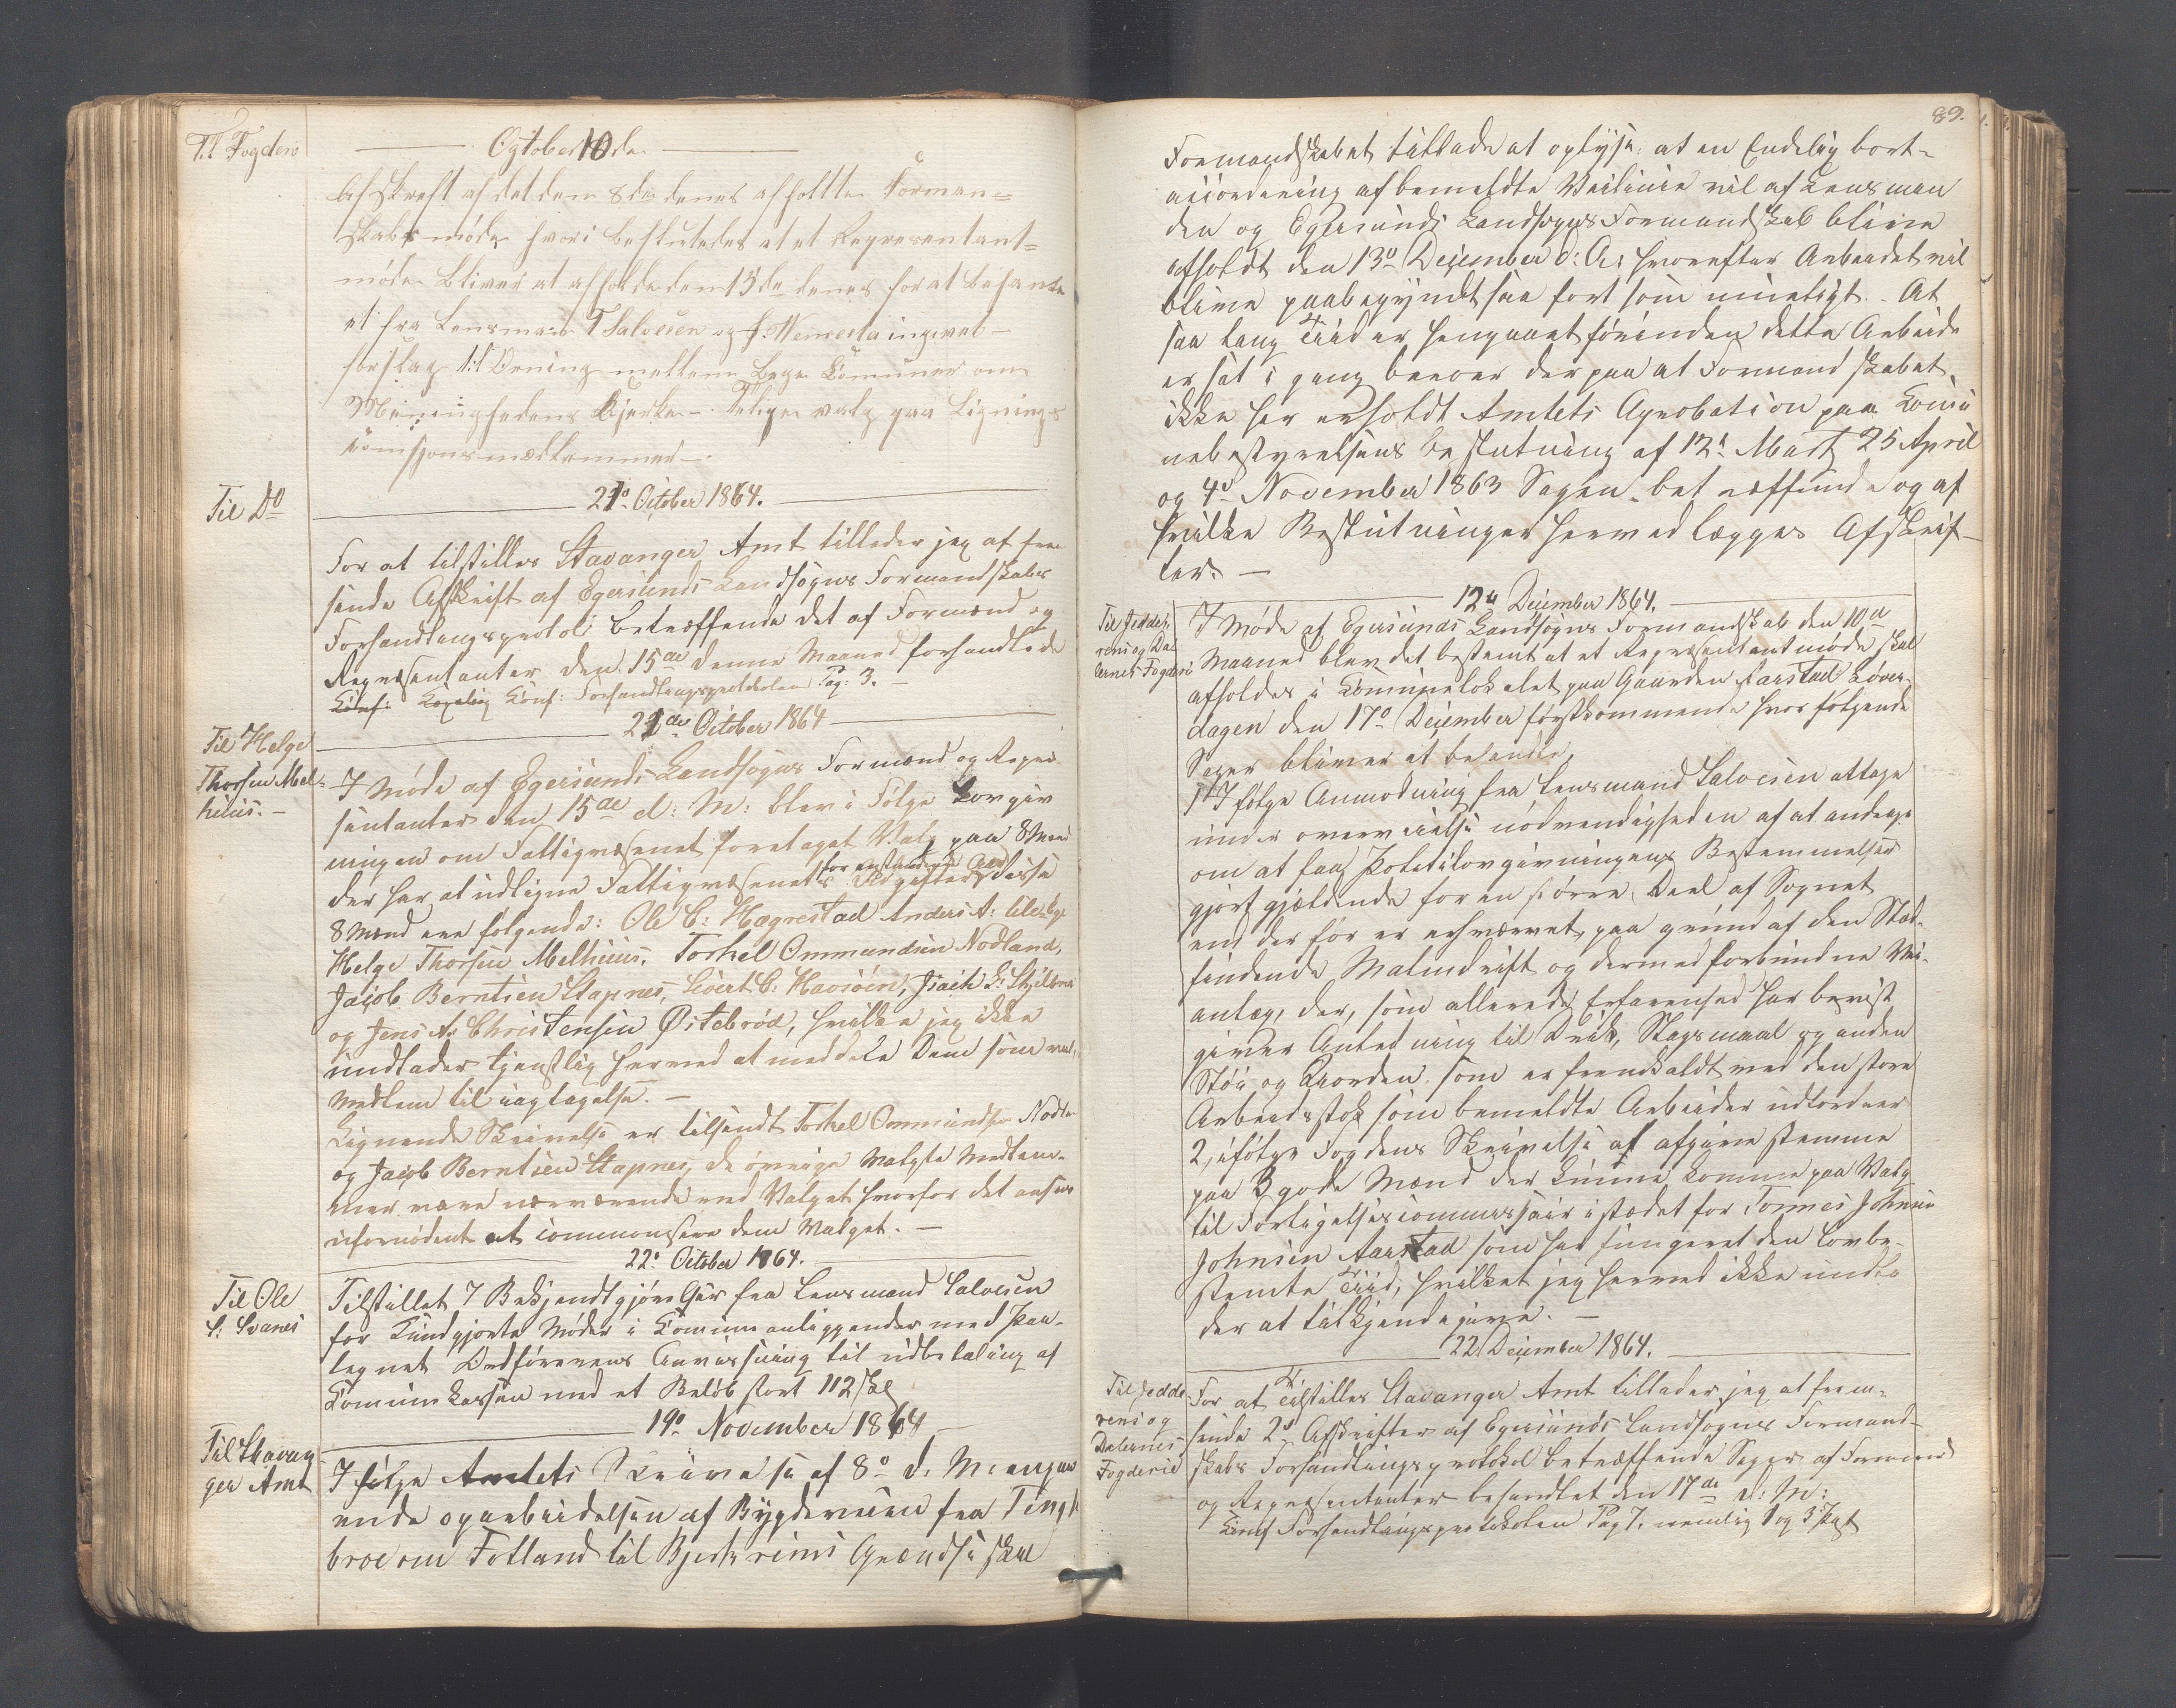 Til Fogden
Ogtober 10de
Afskreft af det dem 8de denes afholtte Forman=
skabs møde hvori besluteder at et Representant=
møde bliver at afholde dem 15de denes for at behante
et fra Lensmand T Salvesen og indgivet
forslag til Ordning mellem Komuner om
Menighedens Kjerke -. Selige valg paa Lignings
komissjons medlemmer -.
Til Do
21o October 1864.
For at tilstilles Stavanger Amt tillader jeg at frem
sende Afskrift af Egersunds Landsogns Formandskabs
Forhandlingsprotokol betræffende det af Formænd og
Repræsentanter den 15de denne Maaned forhandlede
Konf: Forhandlingsprotokolen Pag: 3. -
21de October 1864
Til Helge
Thorsen Mel-
huus. -
I Møde af Egersunds Landsogns Formænd og Repræ
sentanter den 15de d: M: blev i Følge Lovgiv
ningen om Fattigvæsenet foretaget Valg paa 8 Mænd
for anstaaende Aar
der har at udligne Fattigvæsenets Udgifter Disse
8 Mænd ere følgende: Ole C: Hægrestad Anders A:
Helge Thorsen Melhuus. Torkel Ommundsen Nodland,
Jacob Berntsen Stapnes, Sivert C: Havsøen, Isach S:
og Jens A: Christensen Østebrød, hvilke jeg ikke
undlader tjenstlig herved at meddele Dem som
Medlem til iagtagelse. -
Lignende Skrivelse er tilsendt Torkel Ommundsen Nodla
og Jacob Berntsen Stapnes, de øvrige Valgte Medlem-
mer vare nærværende ved Valget hvorfor det ansees
ufornødent at communsere dem Valget. -
22o October 1864.
Til Ole
S: Svanes
Tilstillet 7 Bekjendtgjørelser fra Lensmand Salvesen
for Kundgjorte Møder i Komune anliggender med Paa-
tegnet Ordførerens Anvisning til udbetaling af
Komunekassen med et Beløb stort 112 skl
19o November 1864
Til Stavan
ger Amt
I følge Amtets Skrivelse af 8o d. M: angaa
ende oparbeidelsen af Bygdeveien fra Tengs
broe om Fotland til Bjerkreims Grændse skal
89.
Formandskabet tillade at oplyse at en Endelig bort-
accordering af bemeldte Veilinie vil af Lensman
den og Egersunds Landsogns Formandskab blive
afholdt den 13o December d: A: hvorefter Arbeidet vil
blive paabegyndt saa fort som mueligt. - At
saa lang Tiid er hengaaet førinden dette Arbeide
er sat i gang beroer derpaa at Formandskabet
ikke har erholdt Amtets Aprobation paa Komu
nebestyrelsens beslutning af 12te Marts 25 April
og 4o November 1863 Sagen betræffende og af
hvilke Beslutninger hermed lægges Afskrif-
ter. -
12te December 1864.
Til Jedde
rens og Da
lernes Fogderie
I Møde af Egersunds Landsogns Formandskab den 10de
Maaned blev det bestemt at et Repræsentantmøde skal
afholdes i Komunelokalet paa Gaarden Aarstad Løver-
dagen den 17o December førstkommende hvor følgende
Sager bliver at behandle
1, I følge Anmodning fra Lensmand Salvesen at tage
under overveielse nødvendigheden af at andrage
om at faa Politilovgivningens Bestemmelser
gjort gjældende for en større Deel af Sognet
end der før er erhværvet, paa grund af den Stad-
findende Malmdrift og dermed forbundne Vei-
anlæg, der, som allerede Erfarenhed har bevist
giver Anledning til Drik, Slagsmaal og anden
Støi og Uorden som er fremkaldt ved den store
Arbeidsstok som bemeldte Arbeider udfordrer
2, ifølge Fogdens Skrivelse at afgive stemme
paa 3 gode Mænd der kunne komme paa Valg
til Forligelsescommissair i stædet for Tønnes Johnsen
Johnsen Aarstad som har fungeret den lovbe-
stemte Tiid, hvilket jeg herved ikke undla
der at tilkjendegive. -
22 December 1864.
Til Jedde
rens og
Dalernes
Fogderie
For at tilstilles Stavanger Amt tillader jeg at frem-
sende 2de Afskrifter af Egersunds Landsogns Formand-
skabs Forhandlingsprotokol betræffende Sager af Formænd
og Repræsentanter behandlet den 17de d: M:
Konf Forhandlingsprotokolen Pag 7. nemlig 1 og 3 Post